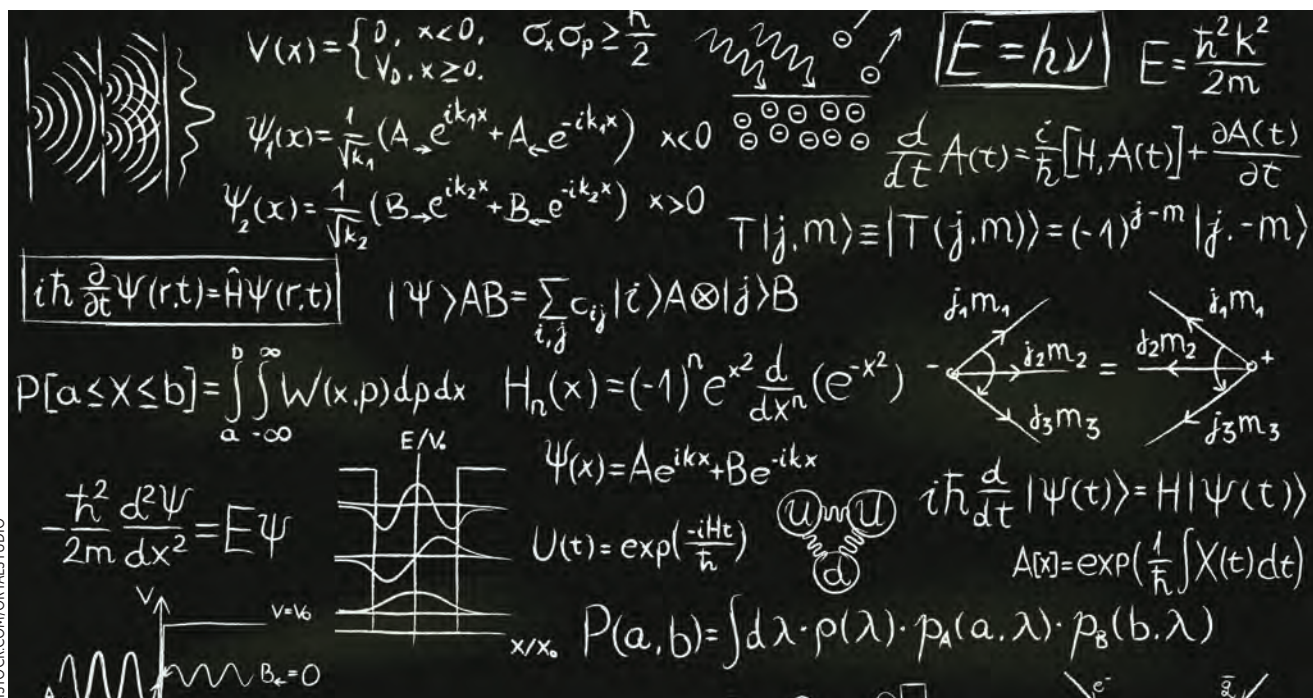 V(x)={0, x<0, V₀, x≥0.
σₓσₚ≥ħ/2
E=hν
E=ħ²k²/2m
Ψ₁(x)=1/√k₁(A→e^{ik₁x}+A←e^{-ik₁x}) x<0
d/dt A(t)=i/ħ[H,A(t)]+∂A(t)/∂t
Ψ₂(x)=1/√k₂(B→e^{ik₂x}+B←e^{-ik₂x}) x>0
T|j,m⟩≡|T(j,m)⟩=(-1)^{j-m}|j.-m⟩
iħ ∂/∂t Ψ(r,t)=ĤΨ(r,t)
|Ψ⟩AB=∑_{i,j} c_{ij}|i⟩A⊗|j⟩B
j₁m₁
j₂m₂
j₃m₃
-
=
j₁m₁
j₂m₂
j₃m₃
+
P[a≤X≤b]=∫_a^b∫_{-∞}^{∞}W(x,p)dpdx
Hₙ(x)=(-1)ⁿe^{x²} d/dxⁿ(e^{-x²})
E/V₀
X/X₀
Ψ(x)=Ae^{ikx}+Be^{-ikx}
iħ d/dt |Ψ(t)⟩=H|Ψ(t)⟩
-ħ²/2m d²Ψ/dx²=EΨ
U(t)=exp(-iHt/ħ)
u u
d
A[x]=exp(1/ħ∫X(t)dt)
P(a,b)=∫dλ·ρ(λ)·p_A(a,λ)·p_B(b.λ)
V
V=V₀
B←=0
A
e⁻
q̄